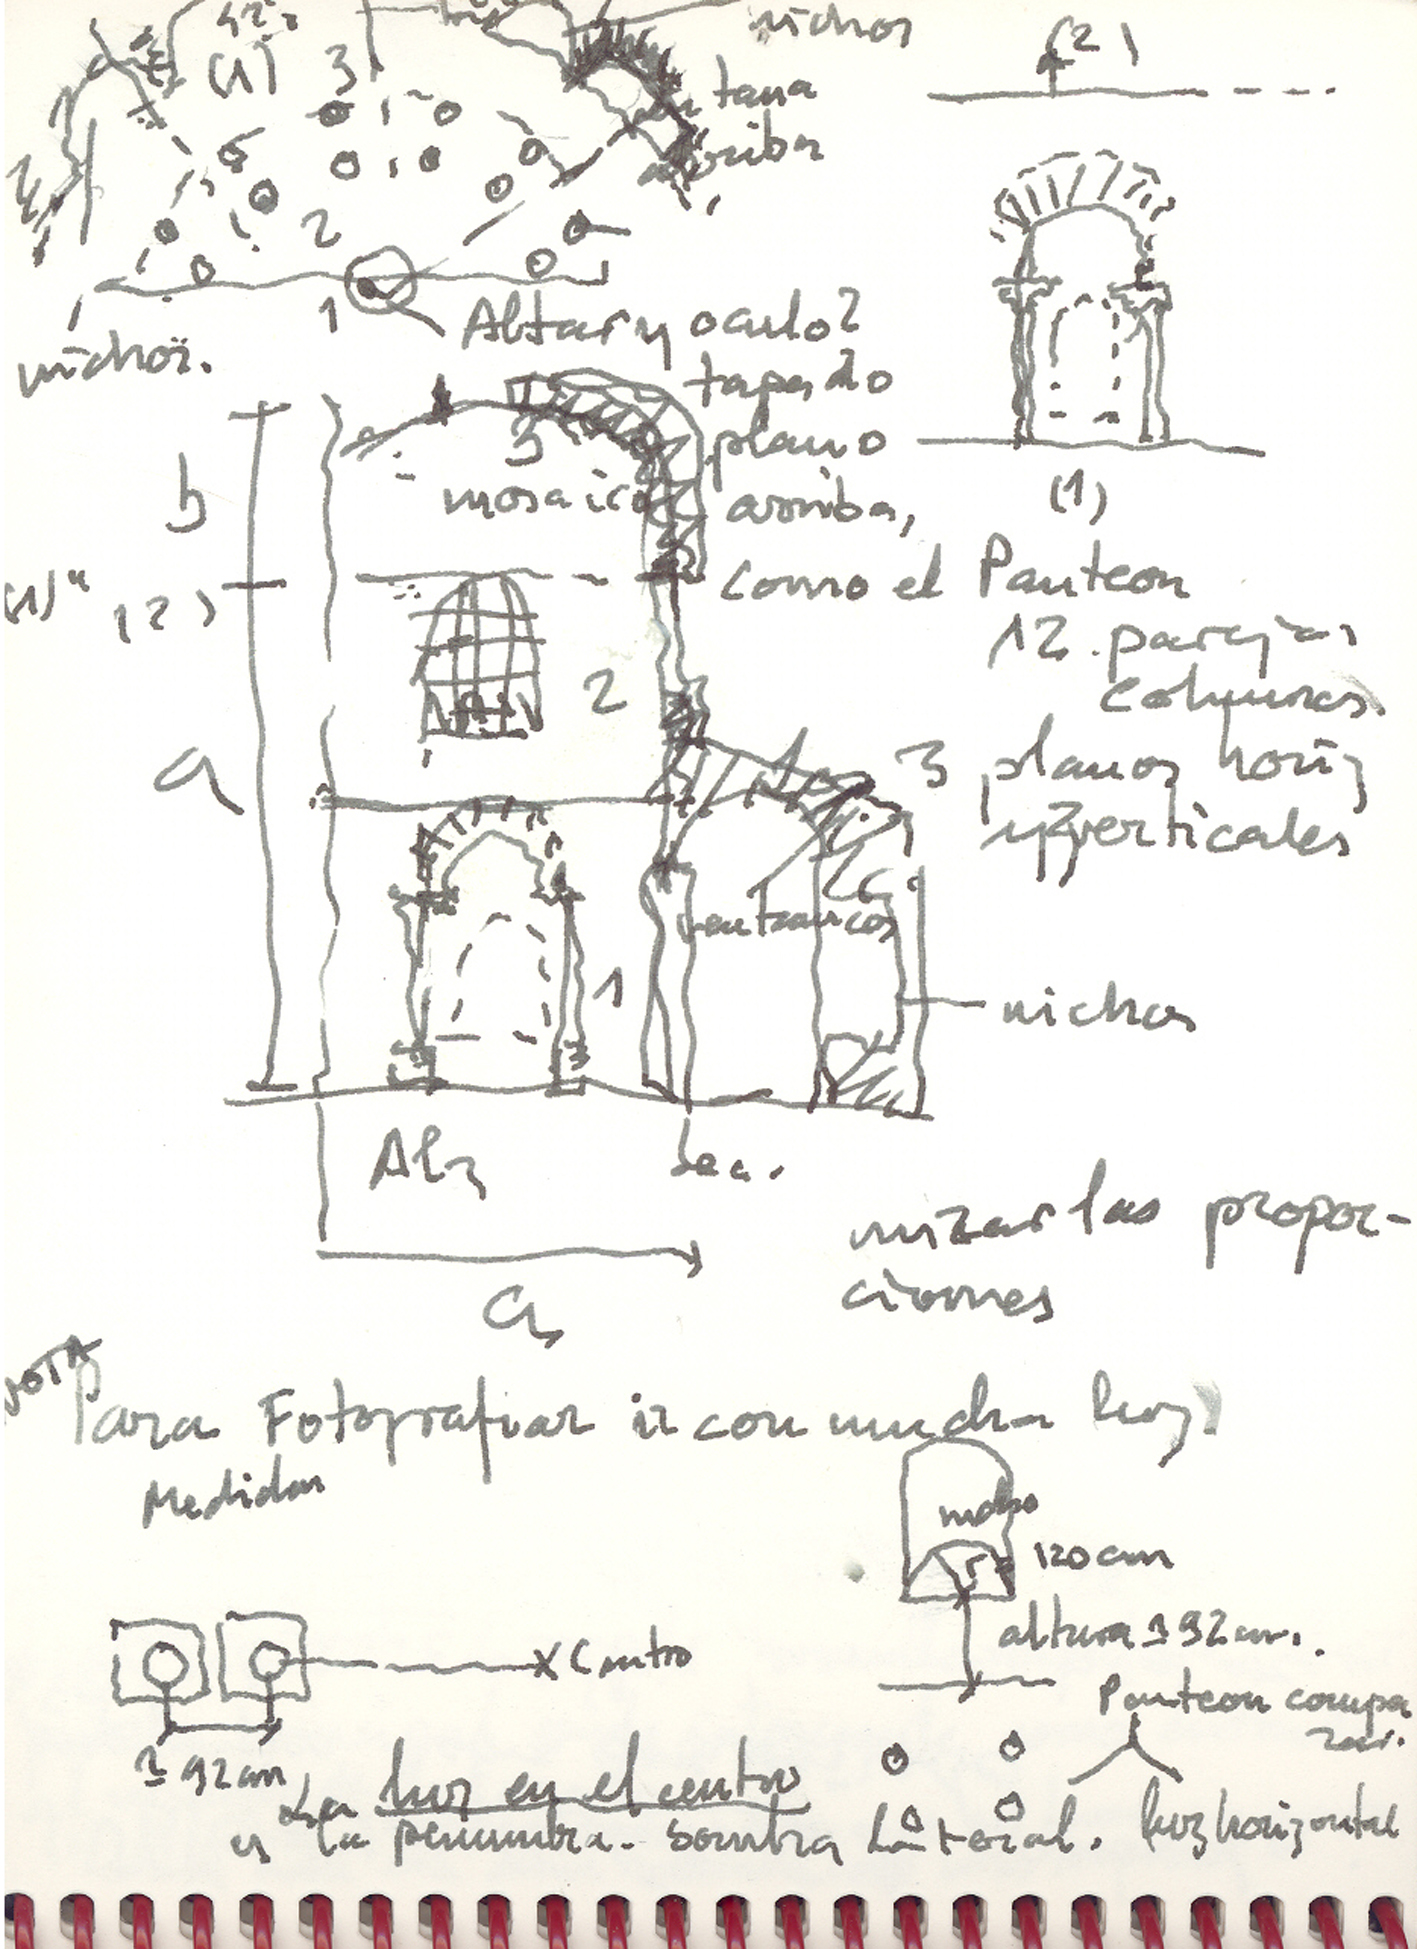 nichos
(2)
(1) 3
ventana
arriba
2
1
nichos.
Altar y oculo?
tapado
plano
arriba,
como el Panteon
12 parejas
columnas.
3 planos horiz
y 2 verticales
3
mosaico
b
(1)"
(2)
2
a
(1)
ventanucos
1
nichos
Alz
Sec.
a
mirar las propor-
ciones
NOTA
Para Fotografiar ir con mucha luz!
Medidas
120 cm
altura 192 cm.
X Centro
192 cm
Panteon compa
rar.
La luz en el centro
y la penumbra. Sombra Lateral. luz horizontal